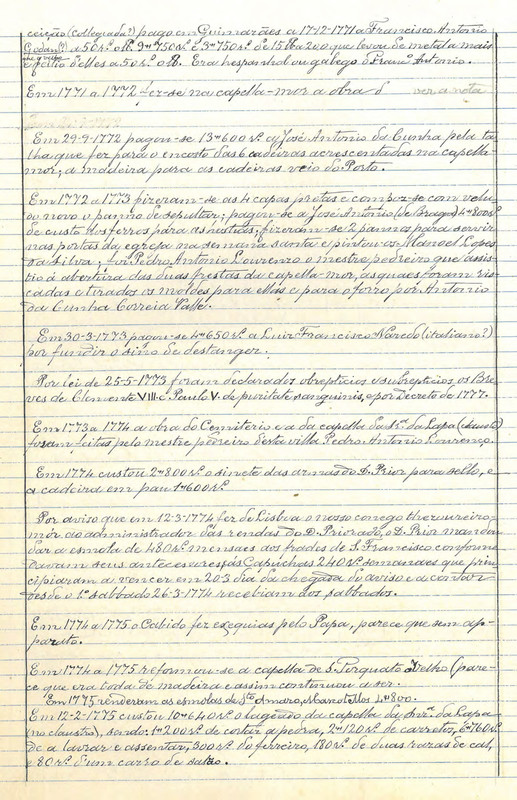 ceição (collegiada?) pagou em Guimarães a 1772-1771 a Francisco Antonio
a 50 rs. o ℔. 9$750 rs. e 3$750 rs. de 15 ℔ a 240 que levou de metal a mais
e feitio d'elles a 50 rs. o ℔. Era hespanhol ou gallego o Franco Antonio.
Em 1771 a 1772 fez-se na capella-mor a obra d ver a nota
Em 29-9-1772 pagou-se 13$600 rs. a José Antonio da Cunha pela ta-
lha que fez para o encosto das 6 cadeiras acrescentadas na capella-
mor; a madeira para as cadeiras veio do Porto.
Em 1772 a 1773 fizeram-se as 4 capas pretas e compoz-se com velu-
do novo o panno de sepultar; pagou-se a José Antonio (de Braga) 4$800 rs.
de custo dos ferros para as hostias; fizeram-se 2 pannos para servir
nas portas da egreja na semana santa e pintou-os Manoel Lopes
da Silva; foi Pedro Antonio Lourenço o mestre pedreiro que assis-
tio á abertura das duas frestas da capella-mor, as quaes foram ris-
cadas e tirados os moldes para ellas e para o forro por Antonio
da Cunha Correia Valle.
Em 30-3-1773 pagou-se 4$650 rs. a Luiz Francisco Naredo (italiano?)
por fundir o sino de destanger.
Por lei de 25-5-1773 foram declarados obrepticios e subrepticios os Bre-
ves de Clemente VIII e Paulo V de puritate sanguinis, e por Decreto de 1777.
Em 1773 a 1774 a obra do Cemiterio e a da capella da Sra. da Lapa (claustro)
foram feitas pelo mestre pedreiro d'esta villa Pedro Antonio Lourenço.
Em 1774 custou 2$800 rs. o sinete das armas do D. Prior para sello, e
a cadeira em pau 1$600 rs.
Por aviso que em 12-3-1774 fez de Lisboa o nosso conego thezoureiro-
mór ao administrador das rendas do D. Priorado, o D. Prior mandou
dar a esmola de 480 rs. mensaes aos frades de S. Francisco conforme
davam seus antecessores ás Capuchas 240 rs. semanaes que prin-
cipiaram a vencer em 20-3 dia da chegada do aviso e a contar
desde o 1º sabbado 26-3-1774 recebiam aos sabbados.
Em 1774 a 1775 o Cabido fez exequias pelo Papa, parece que sem ap-
parato.
Em 1774 a 1775 reformou-se a capella de S. Torquato o Velho (pare-
ce que era toda de madeira e assim continuou a ser.
Em 1775 renderam as esmolas de Sto Amaro, Mascotellos 4$800.
Em 12-2-1775 custou 10$640 rs. o lageado da capella da Sra. da Lapa
(no claustro), sendo: 1$200 rs. de cortar a pedra, 2$120 rs. de carretos, 6$760 rs.
de a lavrar e assentar, 300 rs. do ferreiro, 180 rs. de duas razas de cal,
e 80 rs. d'um carro de saibro.